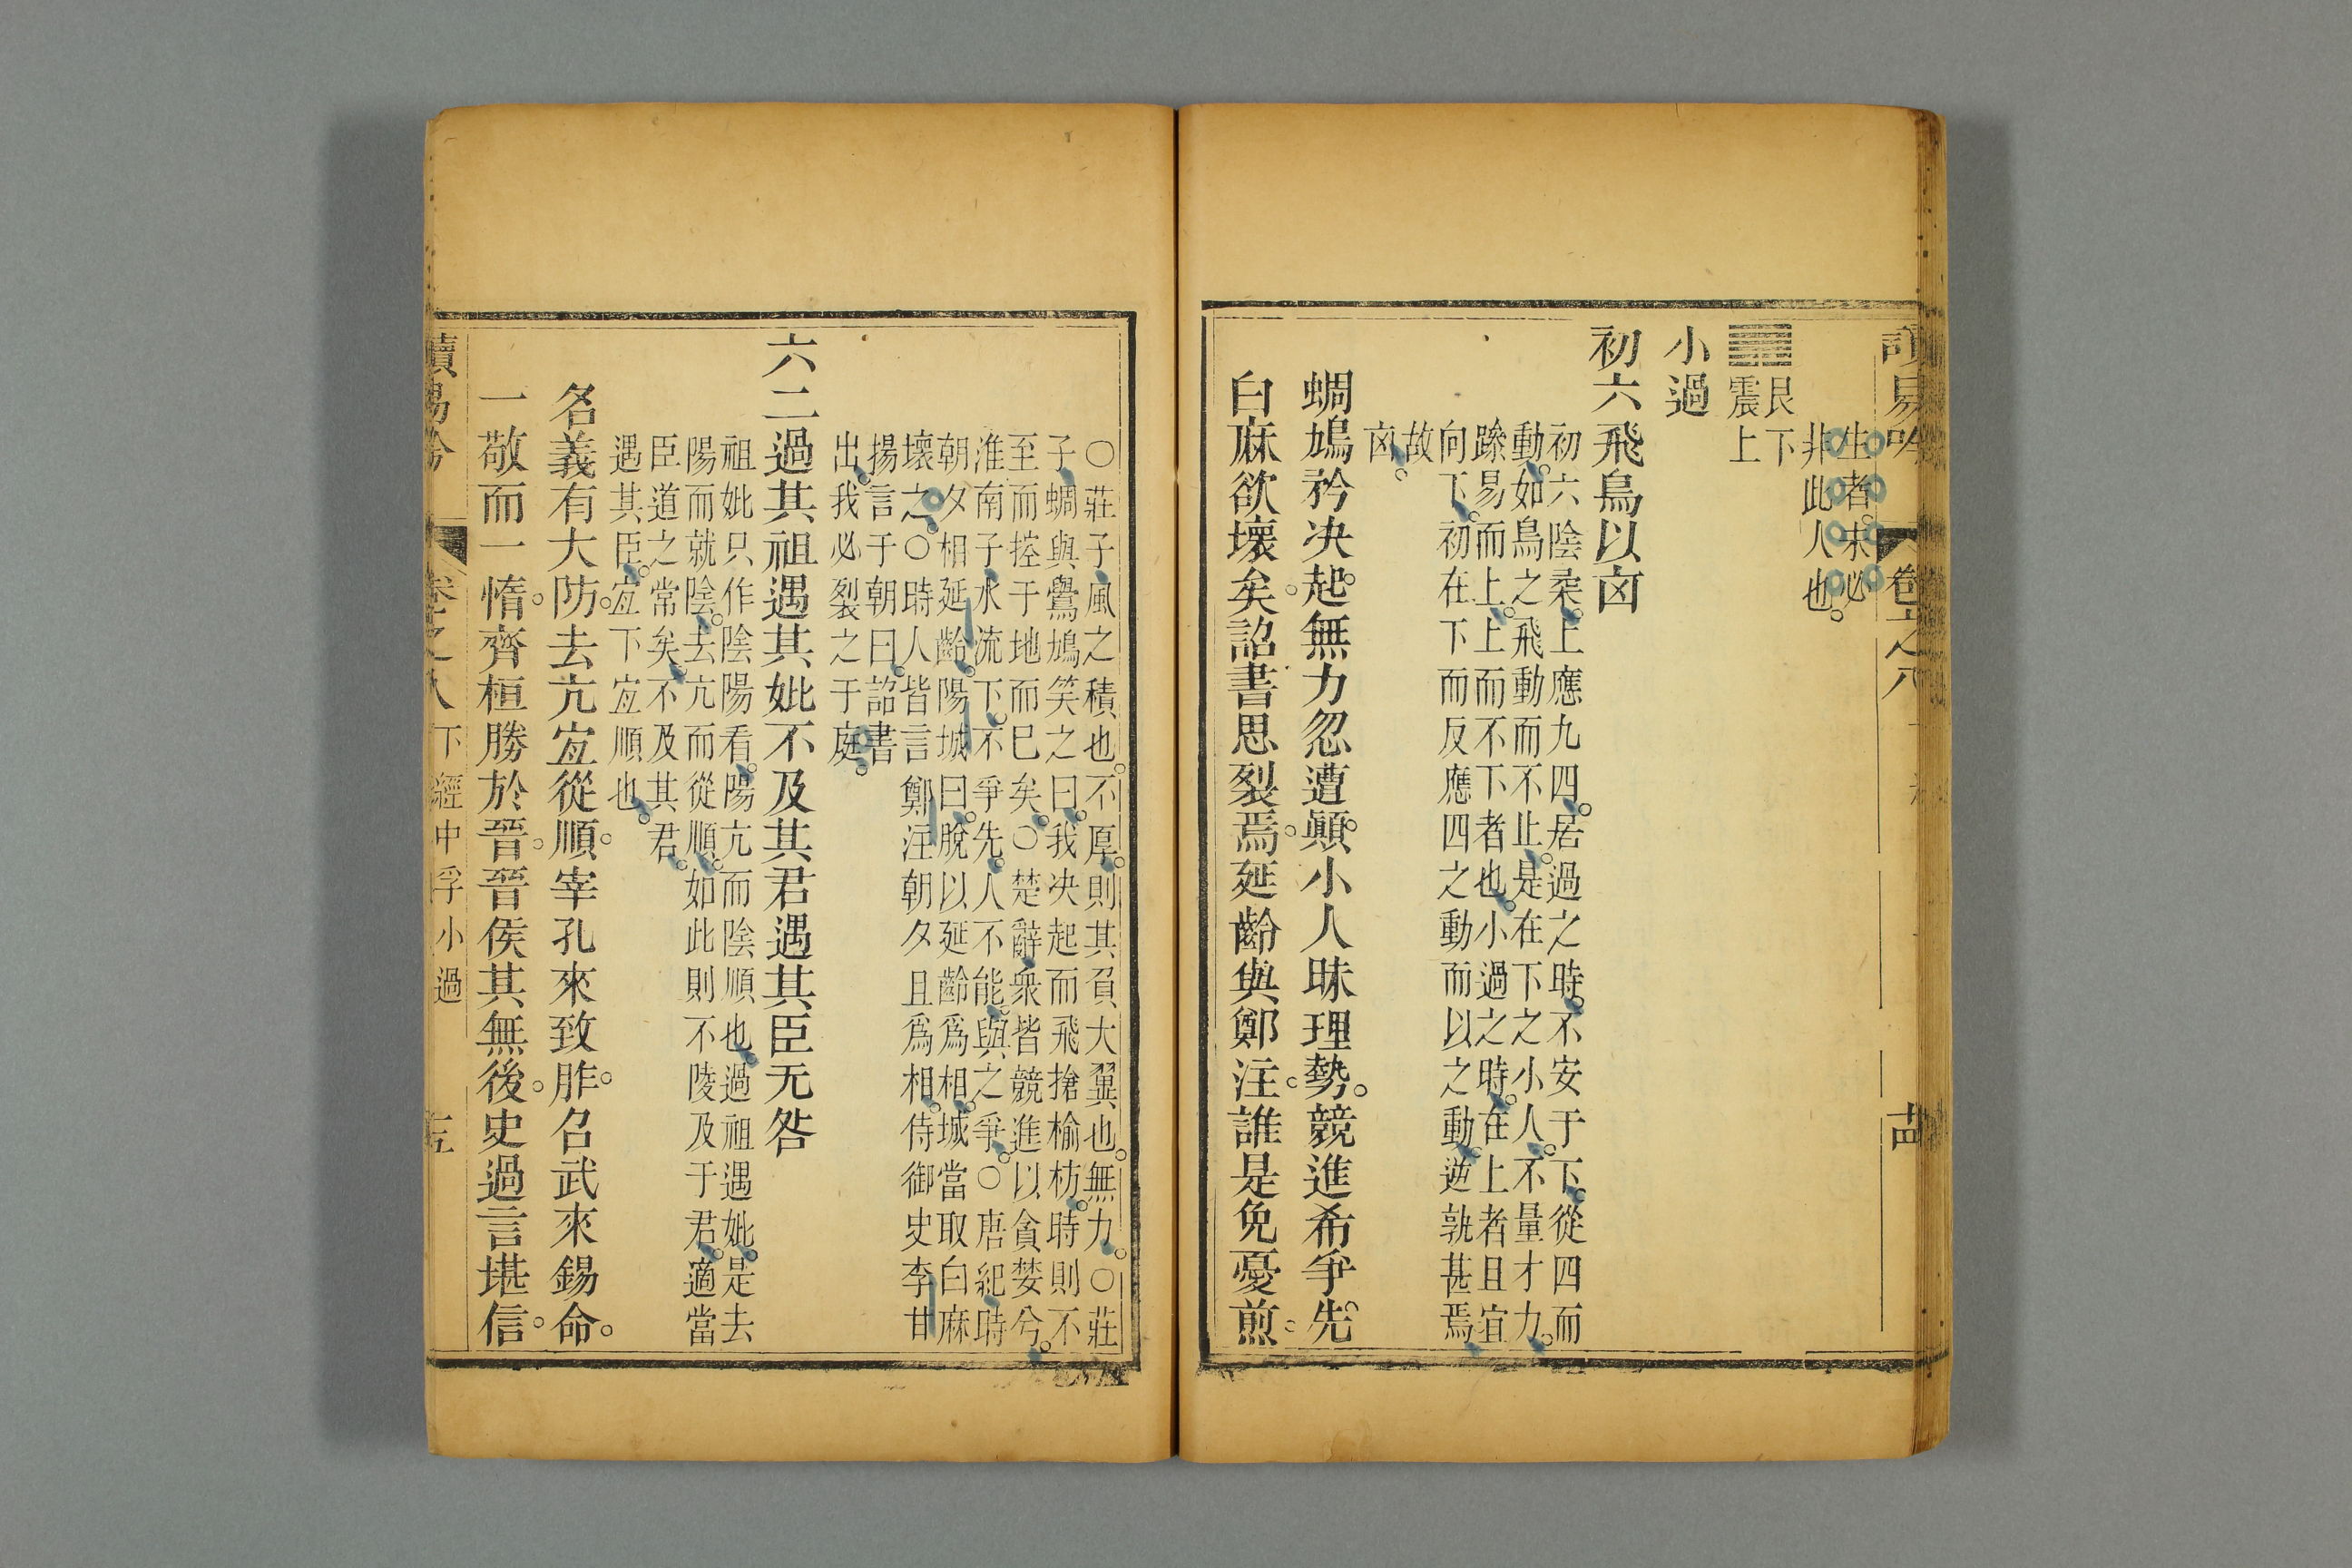 讀易吟 卷之八
生者未必
非此人也
艮下
震上
小過
初六飛鳥以㐫
初六陰柔。上應九四。居過之時。不安于下。從四而
動。如鳥之飛動而不止。是在下之小人。不量才力。
躁易而上。上而不下者也。小過之時。在上者且宜
向下。初在下而反應四之動而以之動。逆孰甚焉
故
㐫。
蜩鳩矜决起。無力忽遭顚。小人昧理勢。競進希爭先。
白麻欲壞矣。詔書思裂焉。延齡與鄭注。誰是免憂煎。
○莊子風之積也。不厚。則其負大翼也。無力。○莊
子蜩與鷽鳩笑之曰。我决起而飛搶榆枋。時則不
至而控于地而已矣。○楚辭衆皆競進以貪婪兮。
淮南子水流下。不爭先。人不能與之爭。○唐紀時
朝夕相延齡。陽城曰。脫以延齡爲相。城當取白麻
壞之。○時人皆言鄭注朝夕且爲相。侍御史李甘
揚言于朝曰。詔書
出。我必裂之于庭。
六二過其祖遇其妣不及其君遇其臣无咎
祖妣只作陰陽看。陽亢而陰順也。過祖遇妣。是去
陽而就陰。去亢而從順。如此則不陵及于君。適當
臣道之常矣。不及其君。
遇其臣。宜下宜順也。
名義有大防。去亢宜從順。宰孔來致胙。召武來錫命。
一敬而一惰。齊桓勝於晉。晉侯其無後。史過言堪信。
讀易吟 卷之八 下經中孚小過